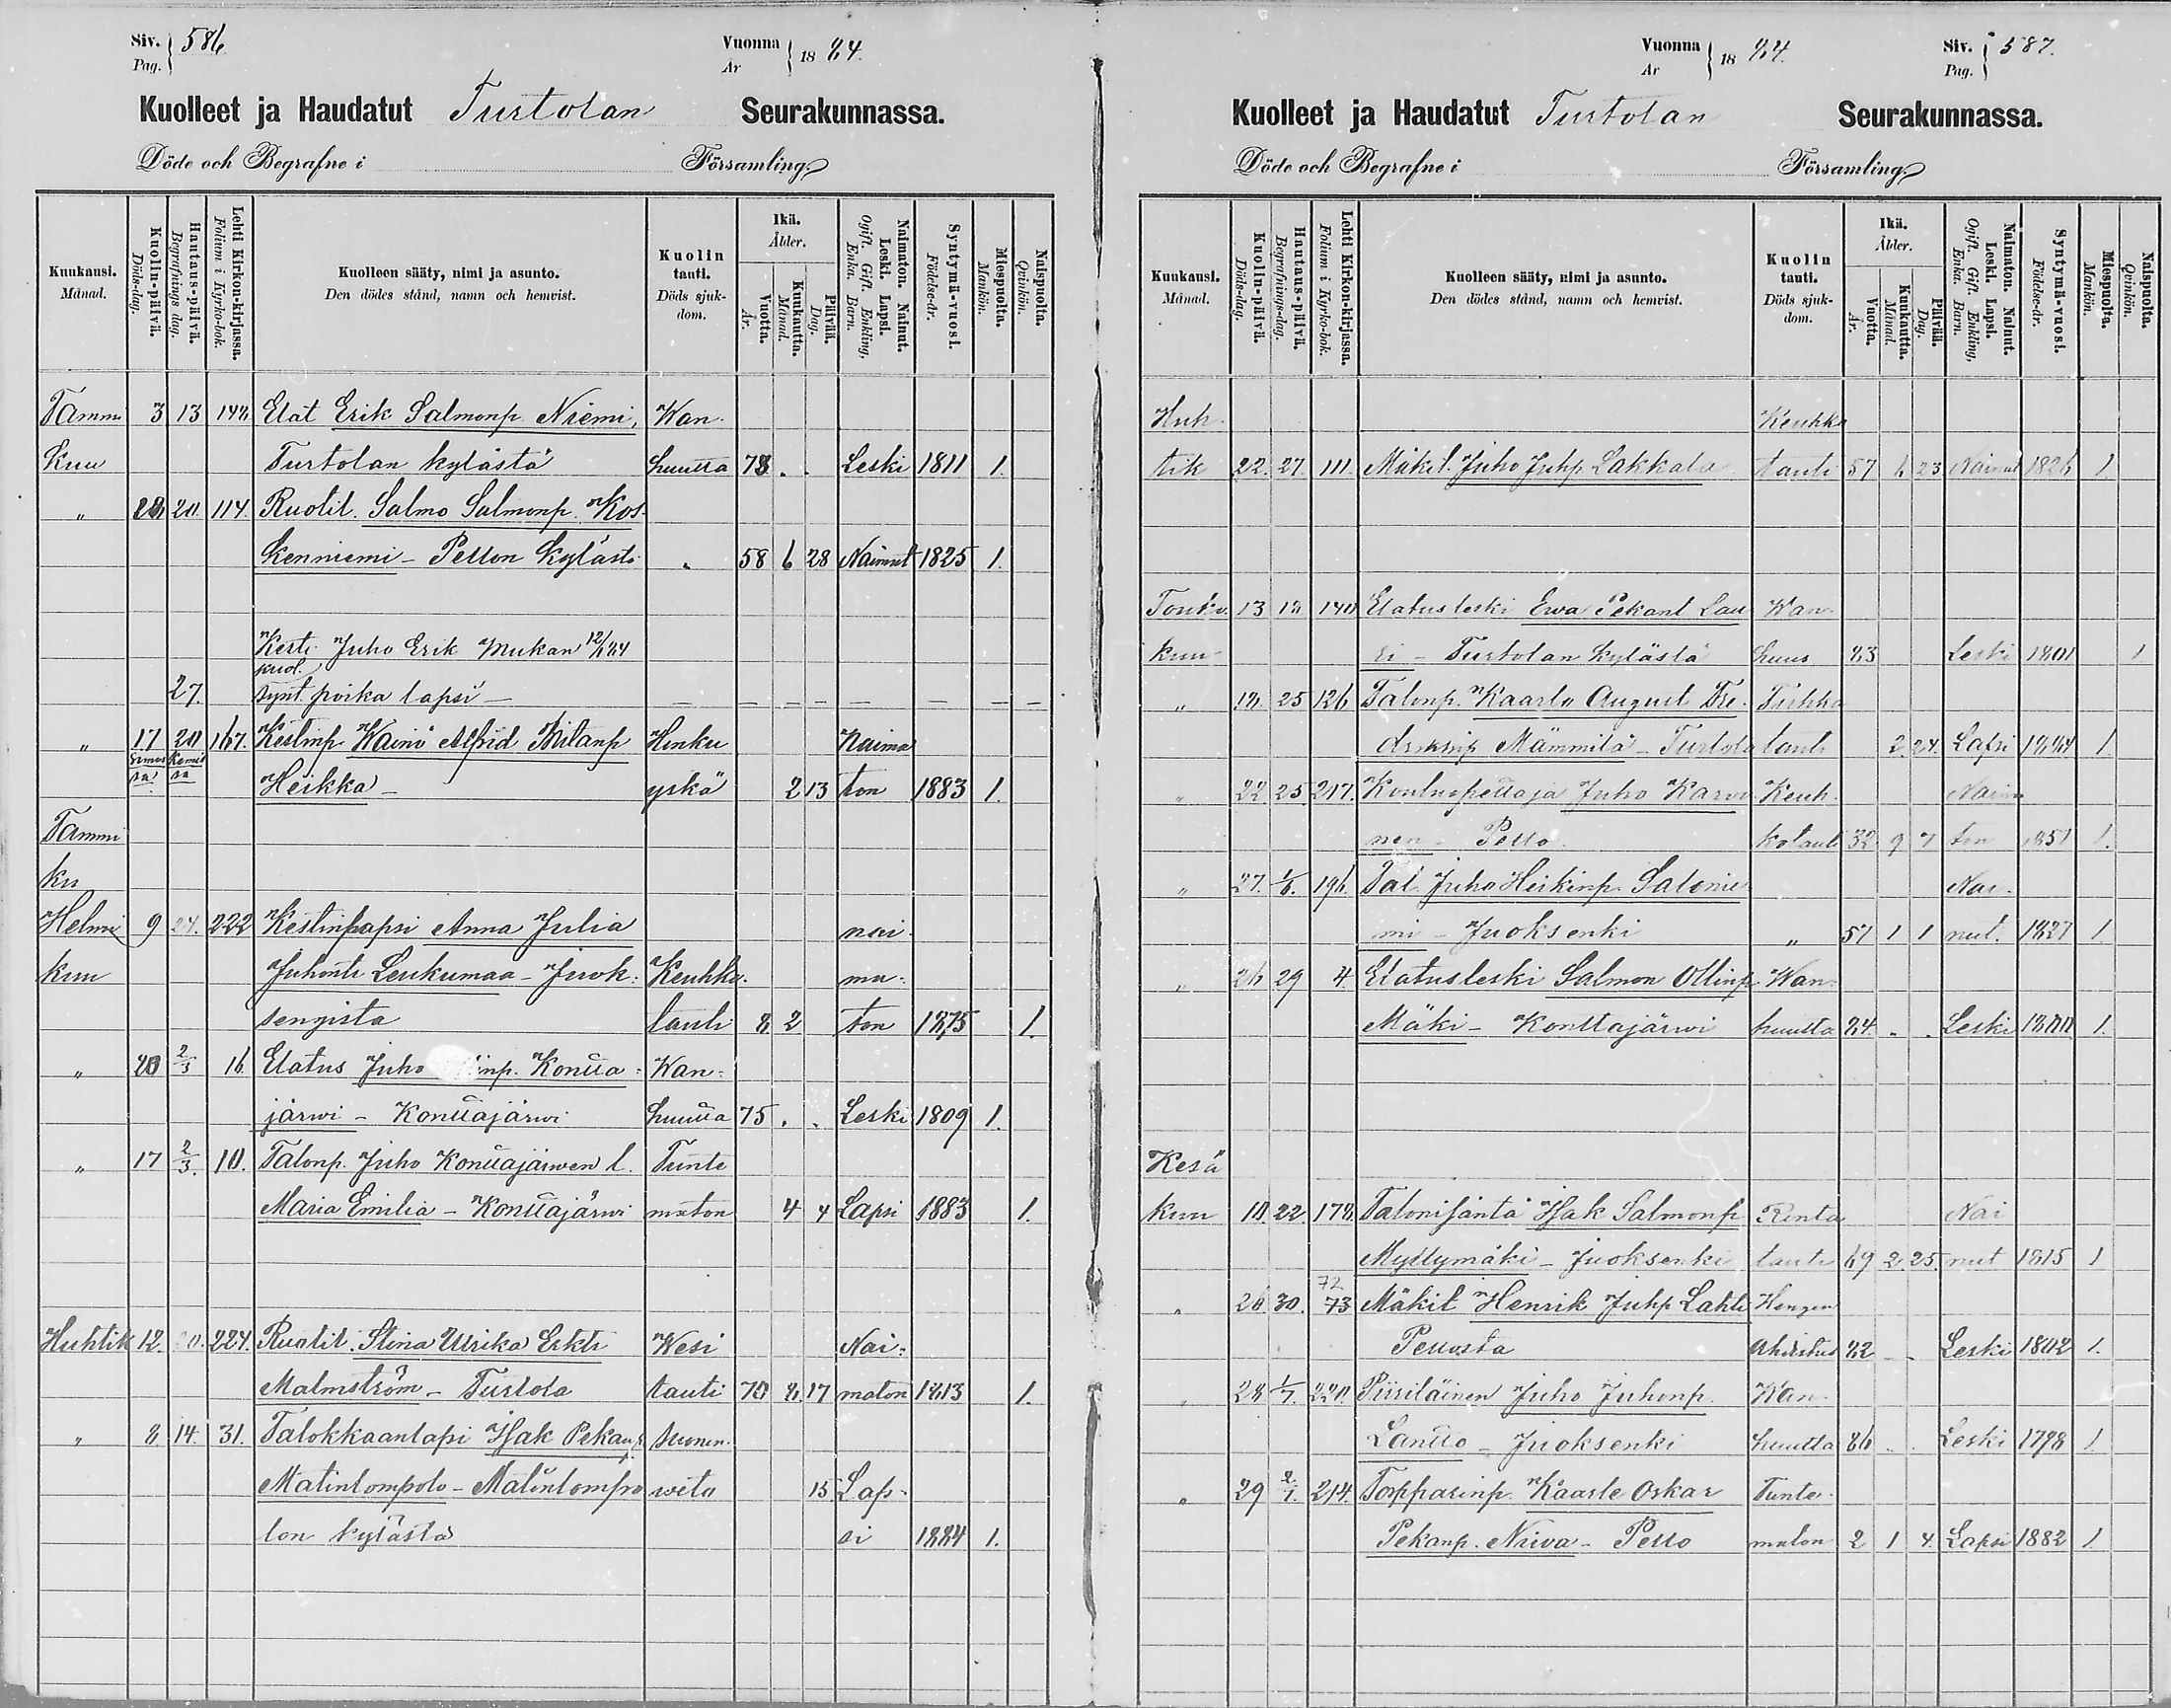 Siv. Pag. 586.
Vuonna År 1884.
Kuolleet ja Haudatut Turtolan Seurakunnassa.
Döde och Begrafne i Församling.
Kuukausi. Månad.
Kuolin-päivä. Döds-dag.
Hautaus-päivä. Begrafnings dag.
Lehti Kirkon-kirjassa. Folium i Kyrko-bok.
Kuolleen sääty, nimi ja asunto. Den dödes stånd, namn och hemvist.
Kuolin tauti. Döds sjuk-dom.
Ikä. Ålder.
Vuotta. År.
Kuukautta. Månad.
Päivää. Dag.
Naimaton. Nainut. Leski. Lapsi. Ogift. Gift. Enkling, Enka. Barn.
Syntymä-vuosi. Födelse-år.
Miespuolta. Mankön.
Naispuolta. Qvinkön.
Tammi 3 13 148. Elat Erik Salmonp. Niemi, Wan-
kuu Turtolan kylästä huutta 73 . . Leski 1811 1.
„ 20. 114. Ruotil. Salmo Salmonp. Kos-
kenniemi - Pellon kyläst. „ 58 6 28 Nainut 1825 1.
Kest. Juho Erik Mukan 12/1 84
kuol.
27. synt. poika lapsi — — — — — — — — —
„ 17 20 167. Kestinp Wäinö Alfrid
Heikka - yskä 2 13 ton 1883 1.
Tammi
ku
Helmi 9 24. 222 Kestinlapsi Anna Julia nai-
kuu Juhont. Leukumaa - Juok- Keuhko- ma-
sengista tauti 8 2 ton 1875 1.
„ 20 2/3 16 Elatus Juho Konttа- Wan-
järwi - Konttajärwi huutta 75 . . Leski 1809 1.
„ 17 2/3. 10. Talonp. Juho Konttajärwen l. Tunte
Maria Emilia - Konttajärwi maton 4 4 Lapsi 1883 1.
Huhtik 12. 20. 224. Ruotil. Stina Ulrika Erkt. Wesi Nai-
Malmström - Turtola tauti 70 8. 17 maton 1813 1.
„ 8. 14. 31. Talokkaanlapsi Isak Pekanp. suonen-
Matinlompolo - Matinlompo weto 15 Lap-
lon kylästä si 1884 1.
Vuonna År 1884.
Siv. Pag. 587.
Kuolleet ja Haudatut Turtolan Seurakunnassa.
Döde och Begrafne i Församling.
Kuukausi. Månad.
Kuolin-päivä. Döds-dag.
Hautaus-päivä. Begrafnings-dag.
Lehti Kirkon-kirjassa. Folium i Kyrko-bok.
Kuolleen sääty, nimi ja asunto. Den dödes stånd, namn och hemvist.
Kuolin tauti. Döds sjuk-dom.
Ikä. Ålder.
Vuotta. År.
Kuukautta. Månad.
Päivää. Dag.
Naimaton. Nainut. Leski. Lapsi. Ogift. Gift. Enkling, Enka. Barn.
Syntymä-vuosi. Födelse-år.
Miespuolta. Mankön.
Naispuolta. Qvinkön.
Huh- Keuhko
tik 22. 27. 111. Mäkil. Juho Juhp. Lakkala tauti 57 6 23 Nainut 1826 1.
Touko 13 18 140 Elatusleski Ewa Pekant Lau Wan-
kuu ri - Turtolan kylästä huus 83 Leski 1801 1
„ 18. 25 126 Talonp. Kaarlo August Fre- Tuhka
drikinp Mämmilä - Turtola tauti 2 24. Lapsi 1884 1.
„ 22 25 217. Koulunopettaja Juho Karvo Keuh-
nen - Pello. kotauti 32 9 7 ton 1851 1.
„ 27. 1/6. 196. Tal. Juho Heikinp. Salonie Nai-
mi - Juoksenki „ 57 1 1 nut. 1827 1.
„ 26 29 4. Elatusleski Salmon Ollinp Wan-
Mäki - Konttajärwi huutta 84. . . Leski 1800 1.
Kesä
kuu 10. 22 178. Talonisäntä Isak Salmonp Rinta Nai
Myllymäki - Juoksenki tauti 69 2. 25. nut 1815 1
72
„ 26 30. 73 Mäkil Henrik Juhp. Lahti Hengen
Pellosta ahistus 82 Leski 1802 1.
„ 28 1/7. 220. Juho Juhonp. Wan-
Lantto - Juoksenki huutta 86 . . Leski 1798 1
„ 29 2/7. 214. Torpparinp. Kaarle Oskar Tunte-
Pekanp. Niwa - Pello maton 2 1 4. Lapsi 1882 1